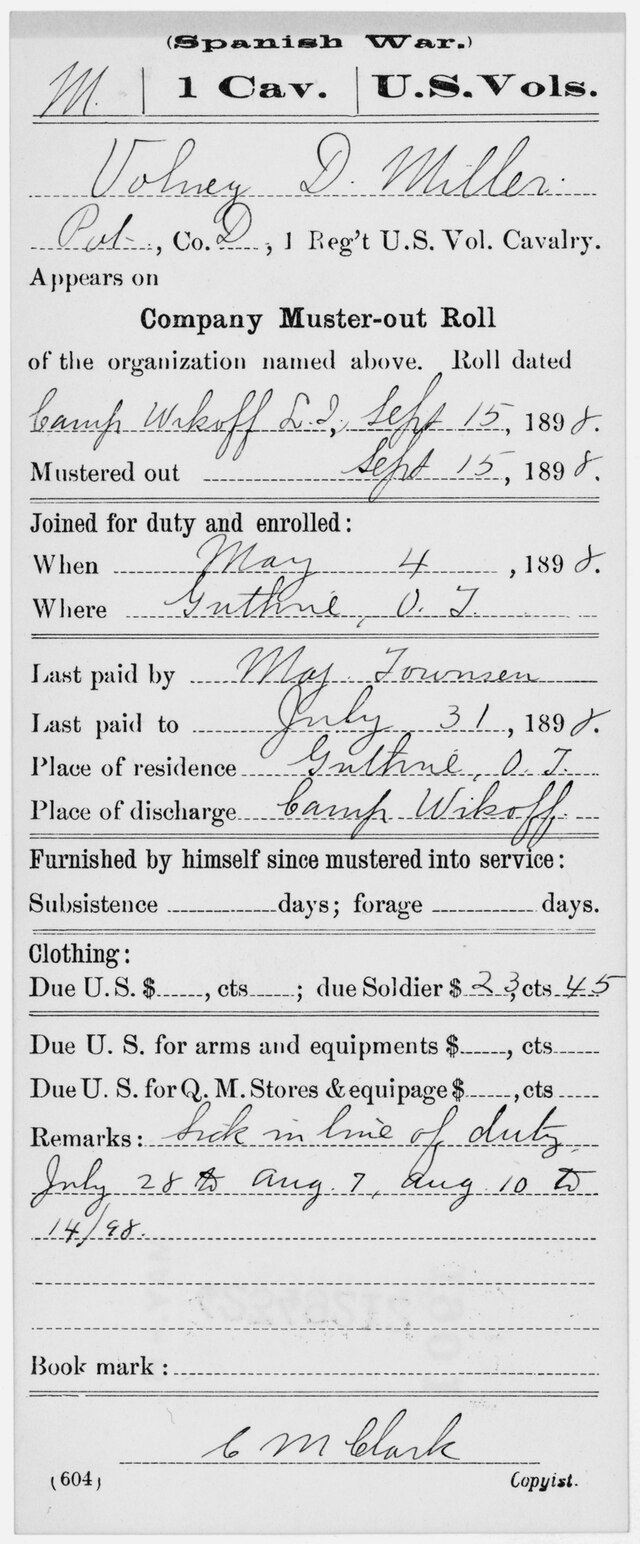 (Spanish War.)
M. | 1 Cav. | U.S. Vols.
Volney D. Miller.
Pvt., Co. D, 1 Reg't U.S. Vol. Cavalry.
Appears on
Company Muster-out Roll
of the organization named above. Roll dated
Camp Wikoff L.I., Sept 15, 1898.
Mustered out Sept 15, 1898.
Joined for duty and enrolled:
When May 4, 1898.
Where Guthrie, O. T.
Last paid by Maj. Townsen
Last paid to July 31, 1898.
Place of residence Guthrie, O. T.
Place of discharge Camp Wikoff.
Furnished by himself since mustered into service:
Subsistence days; forage days.
Clothing:
Due U.S. $, cts; due Soldier $ 23, cts 45
Due U. S. for arms and equipments $, cts
Due U. S. for Q. M. Stores & equipage $, cts
Remarks: Sick in line of duty,
July 28 to Aug. 7, Aug 10 to
14/98.
Book mark:
C M Clark
(604) Copyist.